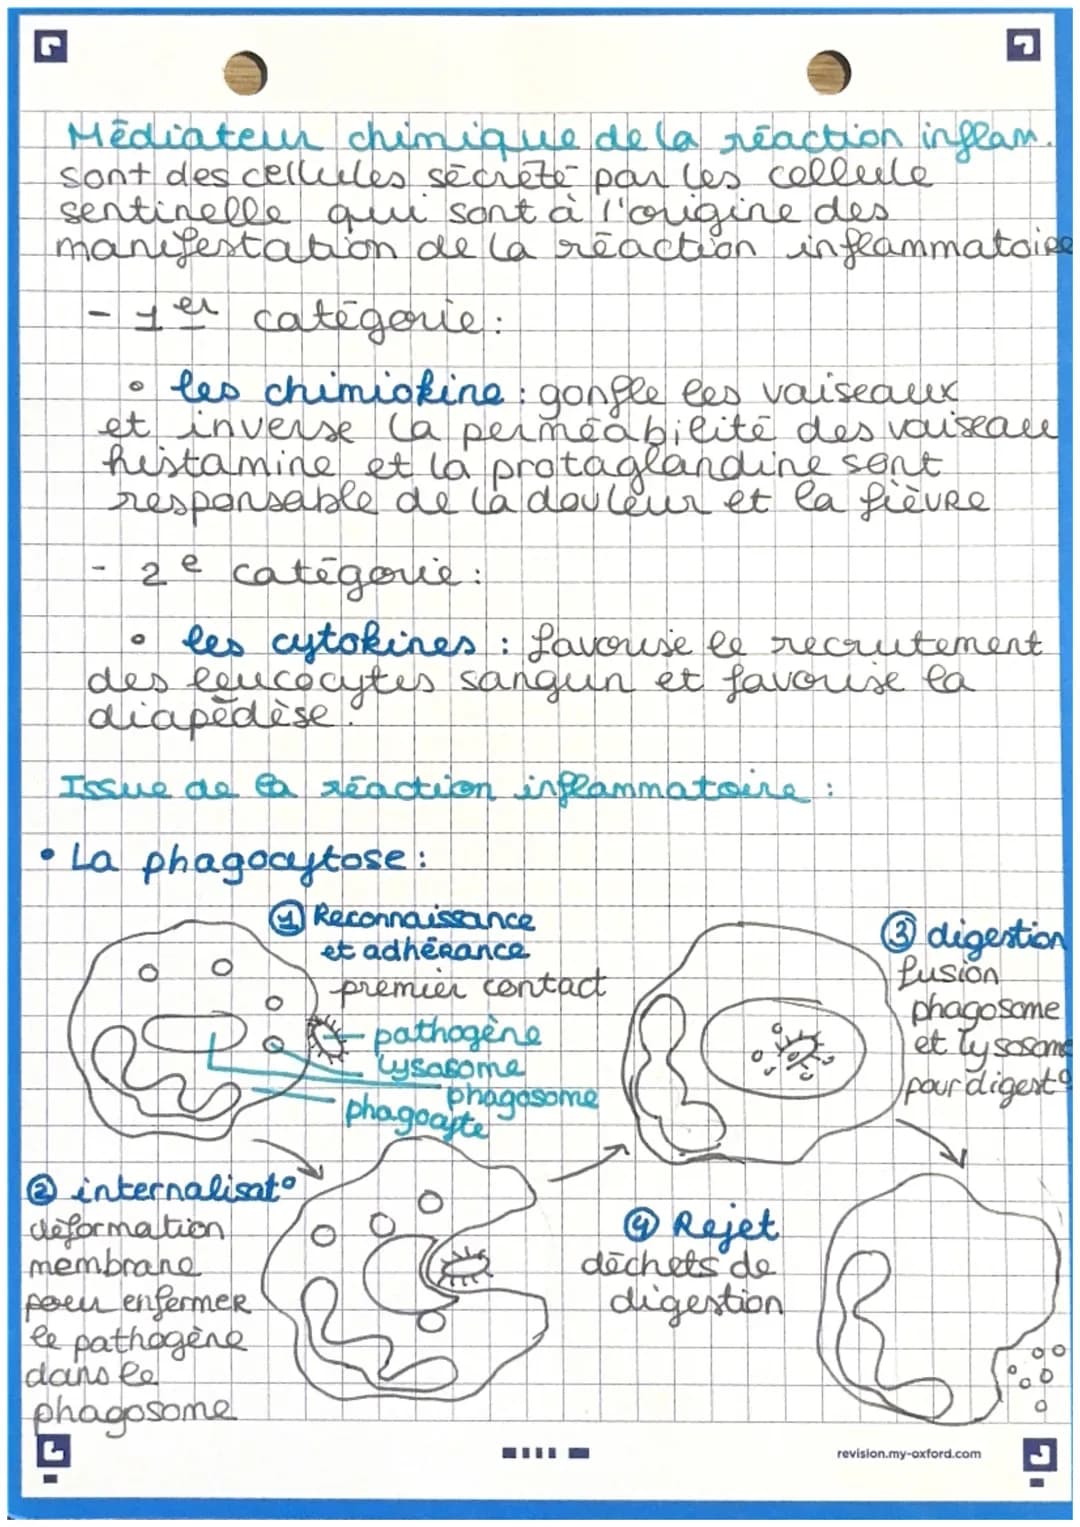 Médiateur chimique de la réaction inflam.
sont des cellules sécrété par les cellule
sentinelle qui sont à l'origine des
manifestation de la réaction inflammatoire
- 1er catégorie :
• les chimiokine : gonfle les vaiseaux
et inverse la perméabilité des vaiseau
histamine et la protaglandine sont
responsable de la douleur et la fièvre
- 2e catégorie :
• les cytokines : favorise le recrutement
des leucocytes sanguin et favorise la
diapédèse.
Issue de la réaction inflammatoire :
• La phagocytose :
① Reconnaissance
et adhérance
premier contact
pathogène
lysosome
phagosome
phagocyte
② internalisat°
déformation
membrane
pour enfermer
le pathogène
dans le
phagosome
③ digestion
fusion
phagosome
et lysosome
pour digest°
④ Rejet
déchets de
digestion
revision.my-oxford.com